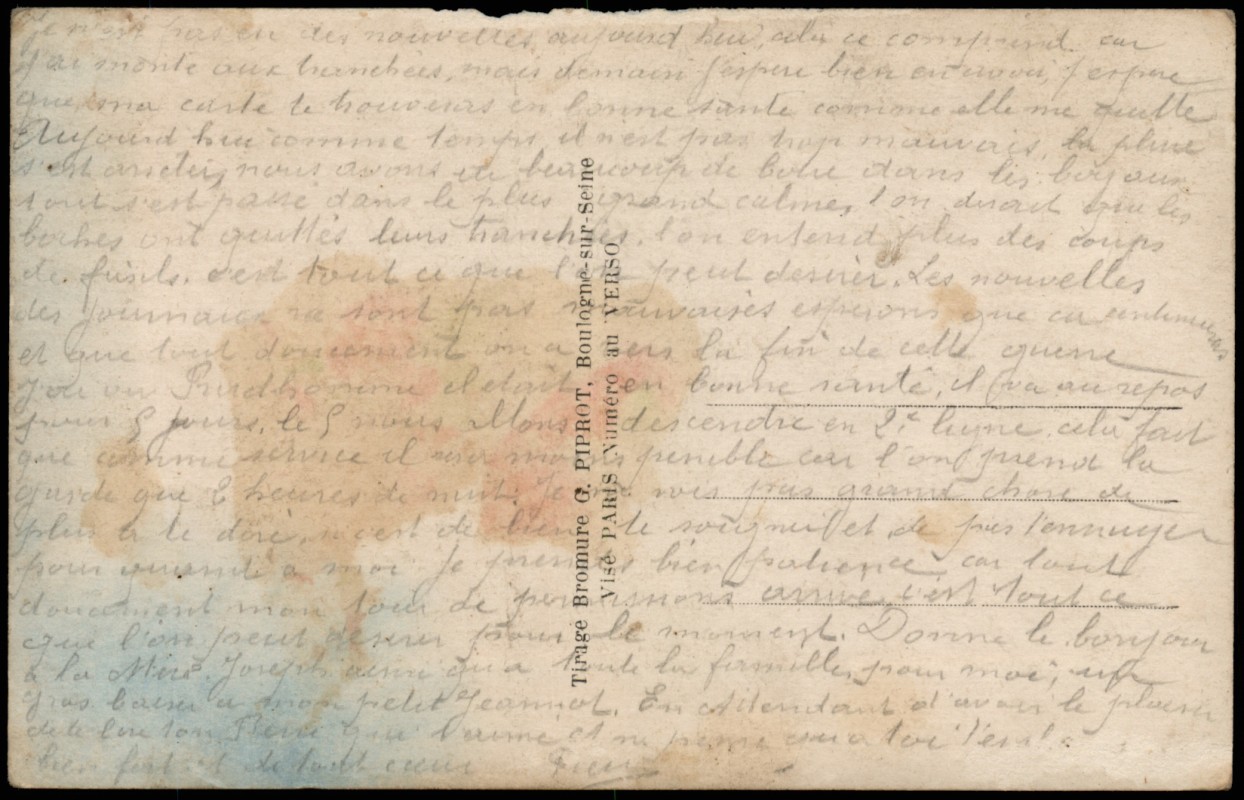 Je n'ait pas eu des nouvelles aujourd hui, cela ce comprend car
J'ai monté aux tranchées, mais demain j'espere bien en avoir, j espere
que ma carte te trouveras en bonne santé comme elle me quitte
Aujourd hui comme temps, il n'est pas trop mauvais, la pluie
s'est arretei, nous avons eu beaucoup de boue dans les boyaux
tout s'est passé dans le plus grand calme, l'on dirait que les
boches ont quittés leurs tranchées, l'on entend plus des coups
de fusils. c'est tout ce que l'on peut desirer. Les nouvelles
des journaux ne sont pas mauvaises esperons que ca continueras
et que tout doucement on a vers la fin de cette guerre
J'ai vu Prudhomme il etait en bonne santé, il va au repos
pour 5 jours, le 5 nous allons descendre en 2e ligne cela fait
que comme service il sera moins penible car l'on prend la
garde que 2 heures de nuit. Je ne vois pas grand chose de
plus a te dire, n'est de bien te soigner et de pas t'ennuyer
pour quand a moi Je prends bien patience car tout
doucement mon tour de permissions arrive, c'est tout ce
que l'on peut desirer pour le moment. Donne le bonjour
a la Mere Joseph ainsi qu'a toute la famille, pour moi, un
gros baiser a mon petit Jeannot. En attendant d'avoir le plaisir
de te lire ton Pierre que t'aime et ne pense qu'a toi
bien fort et de tout coeur Pierre
Tirage Bromure G. PIPROT, Boulogne-sur-Seine
Visé PARIS Numéro au VERSO